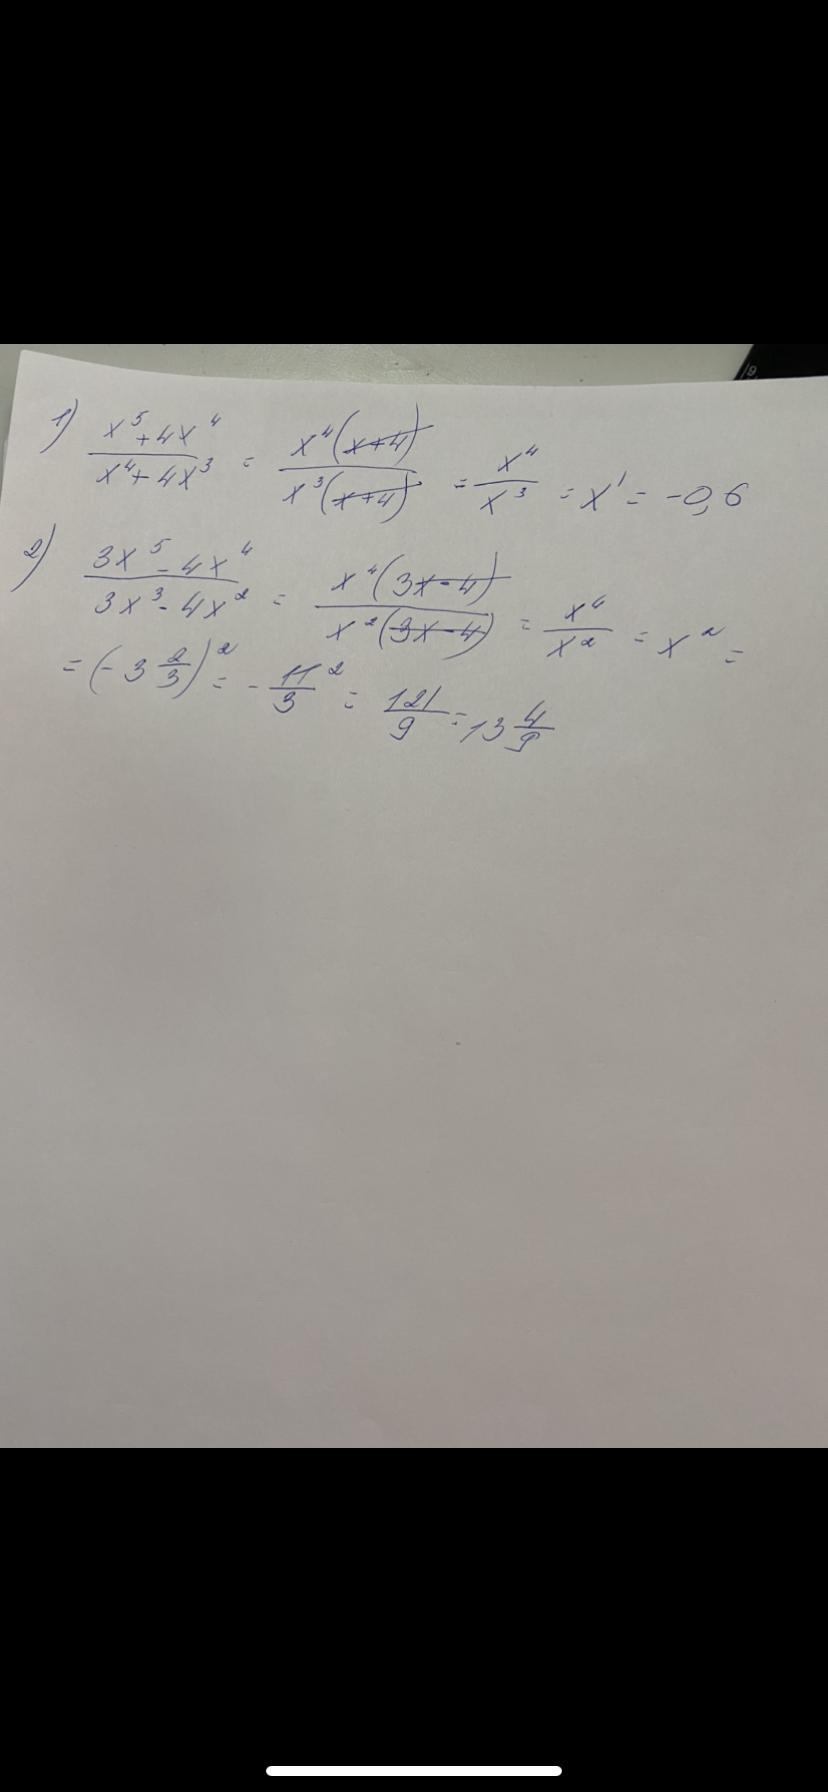 1) x⁵+4x⁴/x⁴+4x³ = x⁴(x+4)/x³(x+4) = x⁴/x³ = x¹ = -0,6
2) 3x⁵-4x⁴/3x³-4x² = x⁴(3x-4)/x²(3x-4) = x⁴/x² = x² =
= (-3 2/3)² = -11/3² = 121/9 = 13 4/9